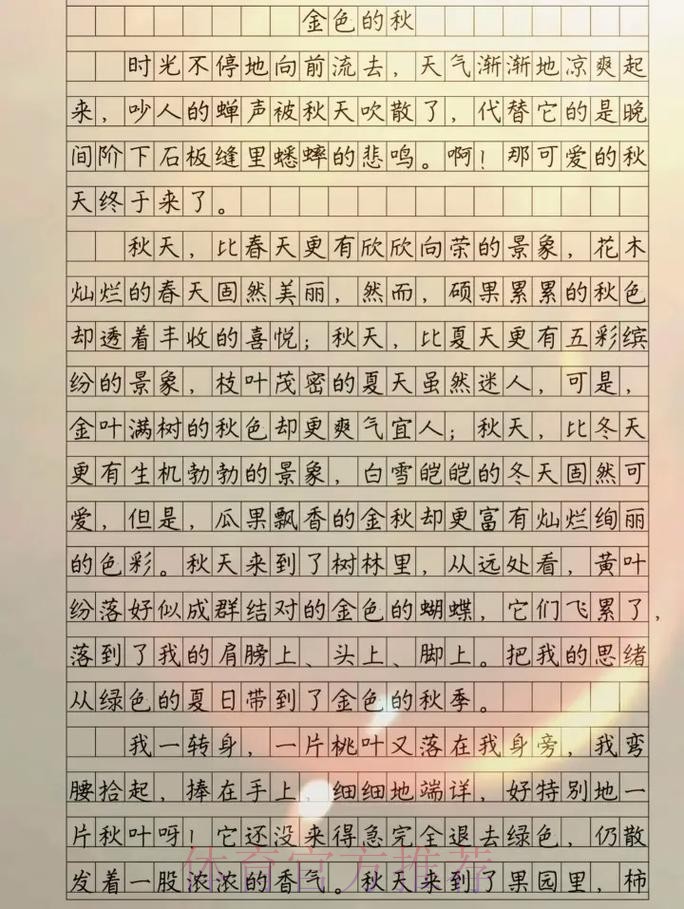 金色的秋
时光不停地向前流去，天气渐渐地凉爽起
来，吵人的蝉声被秋天吹散了，代替它的是晚
间阶下石板缝里蟋蟀的悲鸣。啊！那可爱的秋
天终于来了。
秋天，比春天更有欣欣向荣的景象，花木
灿烂的春天固然美丽，然而，硕果累累的秋色
却透着丰收的喜悦；秋天，比夏天更有五彩缤
纷的景象，枝叶茂密的夏天虽然迷人，可是，
金叶满树的秋色却更爽气宜人；秋天，比冬天
更有生机勃勃的景象，白雪皑皑的冬天固然可
爱，但是，瓜果飘香的金秋却更富有灿烂绚丽
的色彩。秋天来到了树林里，从远处看，黄叶
纷落好似成群结对的金色的蝴蝶，它们飞累了，
落到了我的肩膀上、头上、脚上。把我的思绪
从绿色的夏日带到了金色的秋季。
我一转身，一片桃叶又落在我身旁，我弯
腰拾起，捧在手上，细细地端详，好特别地一
片秋叶呀！它还没来得急完全退去绿色，仍散
发着一股浓浓的香气。秋天来到了果园里，柿
体育官方推荐